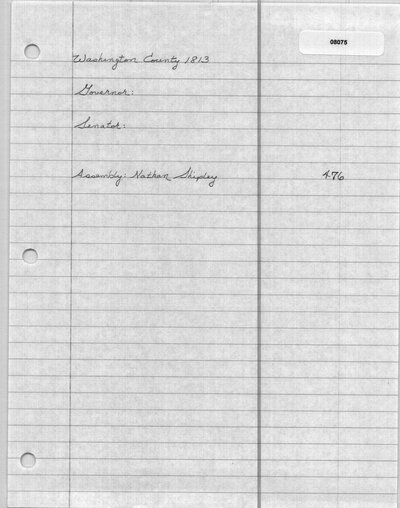 08075
Washington County 1813
Governor:
Senator:
Assembly: Nathan Shipley 476